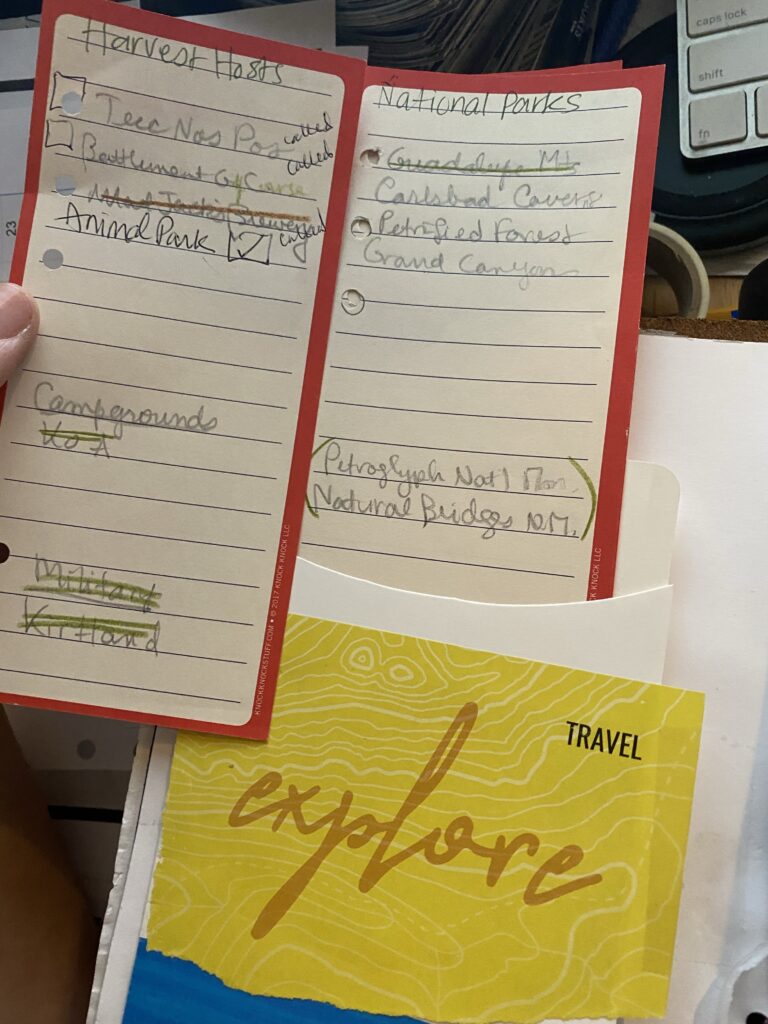 Harvest Hosts
Teec Nos Pos called
Battlement Golf Course called
Brewery called
Animal Park
Campgrounds
KOA
Military
Kirtland
KNOCKKNOCKSTUFF.COM • © 2017 KNOCK KNOCK LLC
National Parks
Guadalupe Mts
Carlsbad Caverns
Petrified Forest
Grand Canyon
Petroglyph Nat'l Mon.
Natural Bridges N.M.
KNOCK KNOCK LLC
TRAVEL
explore
caps lock
shift
fn
23